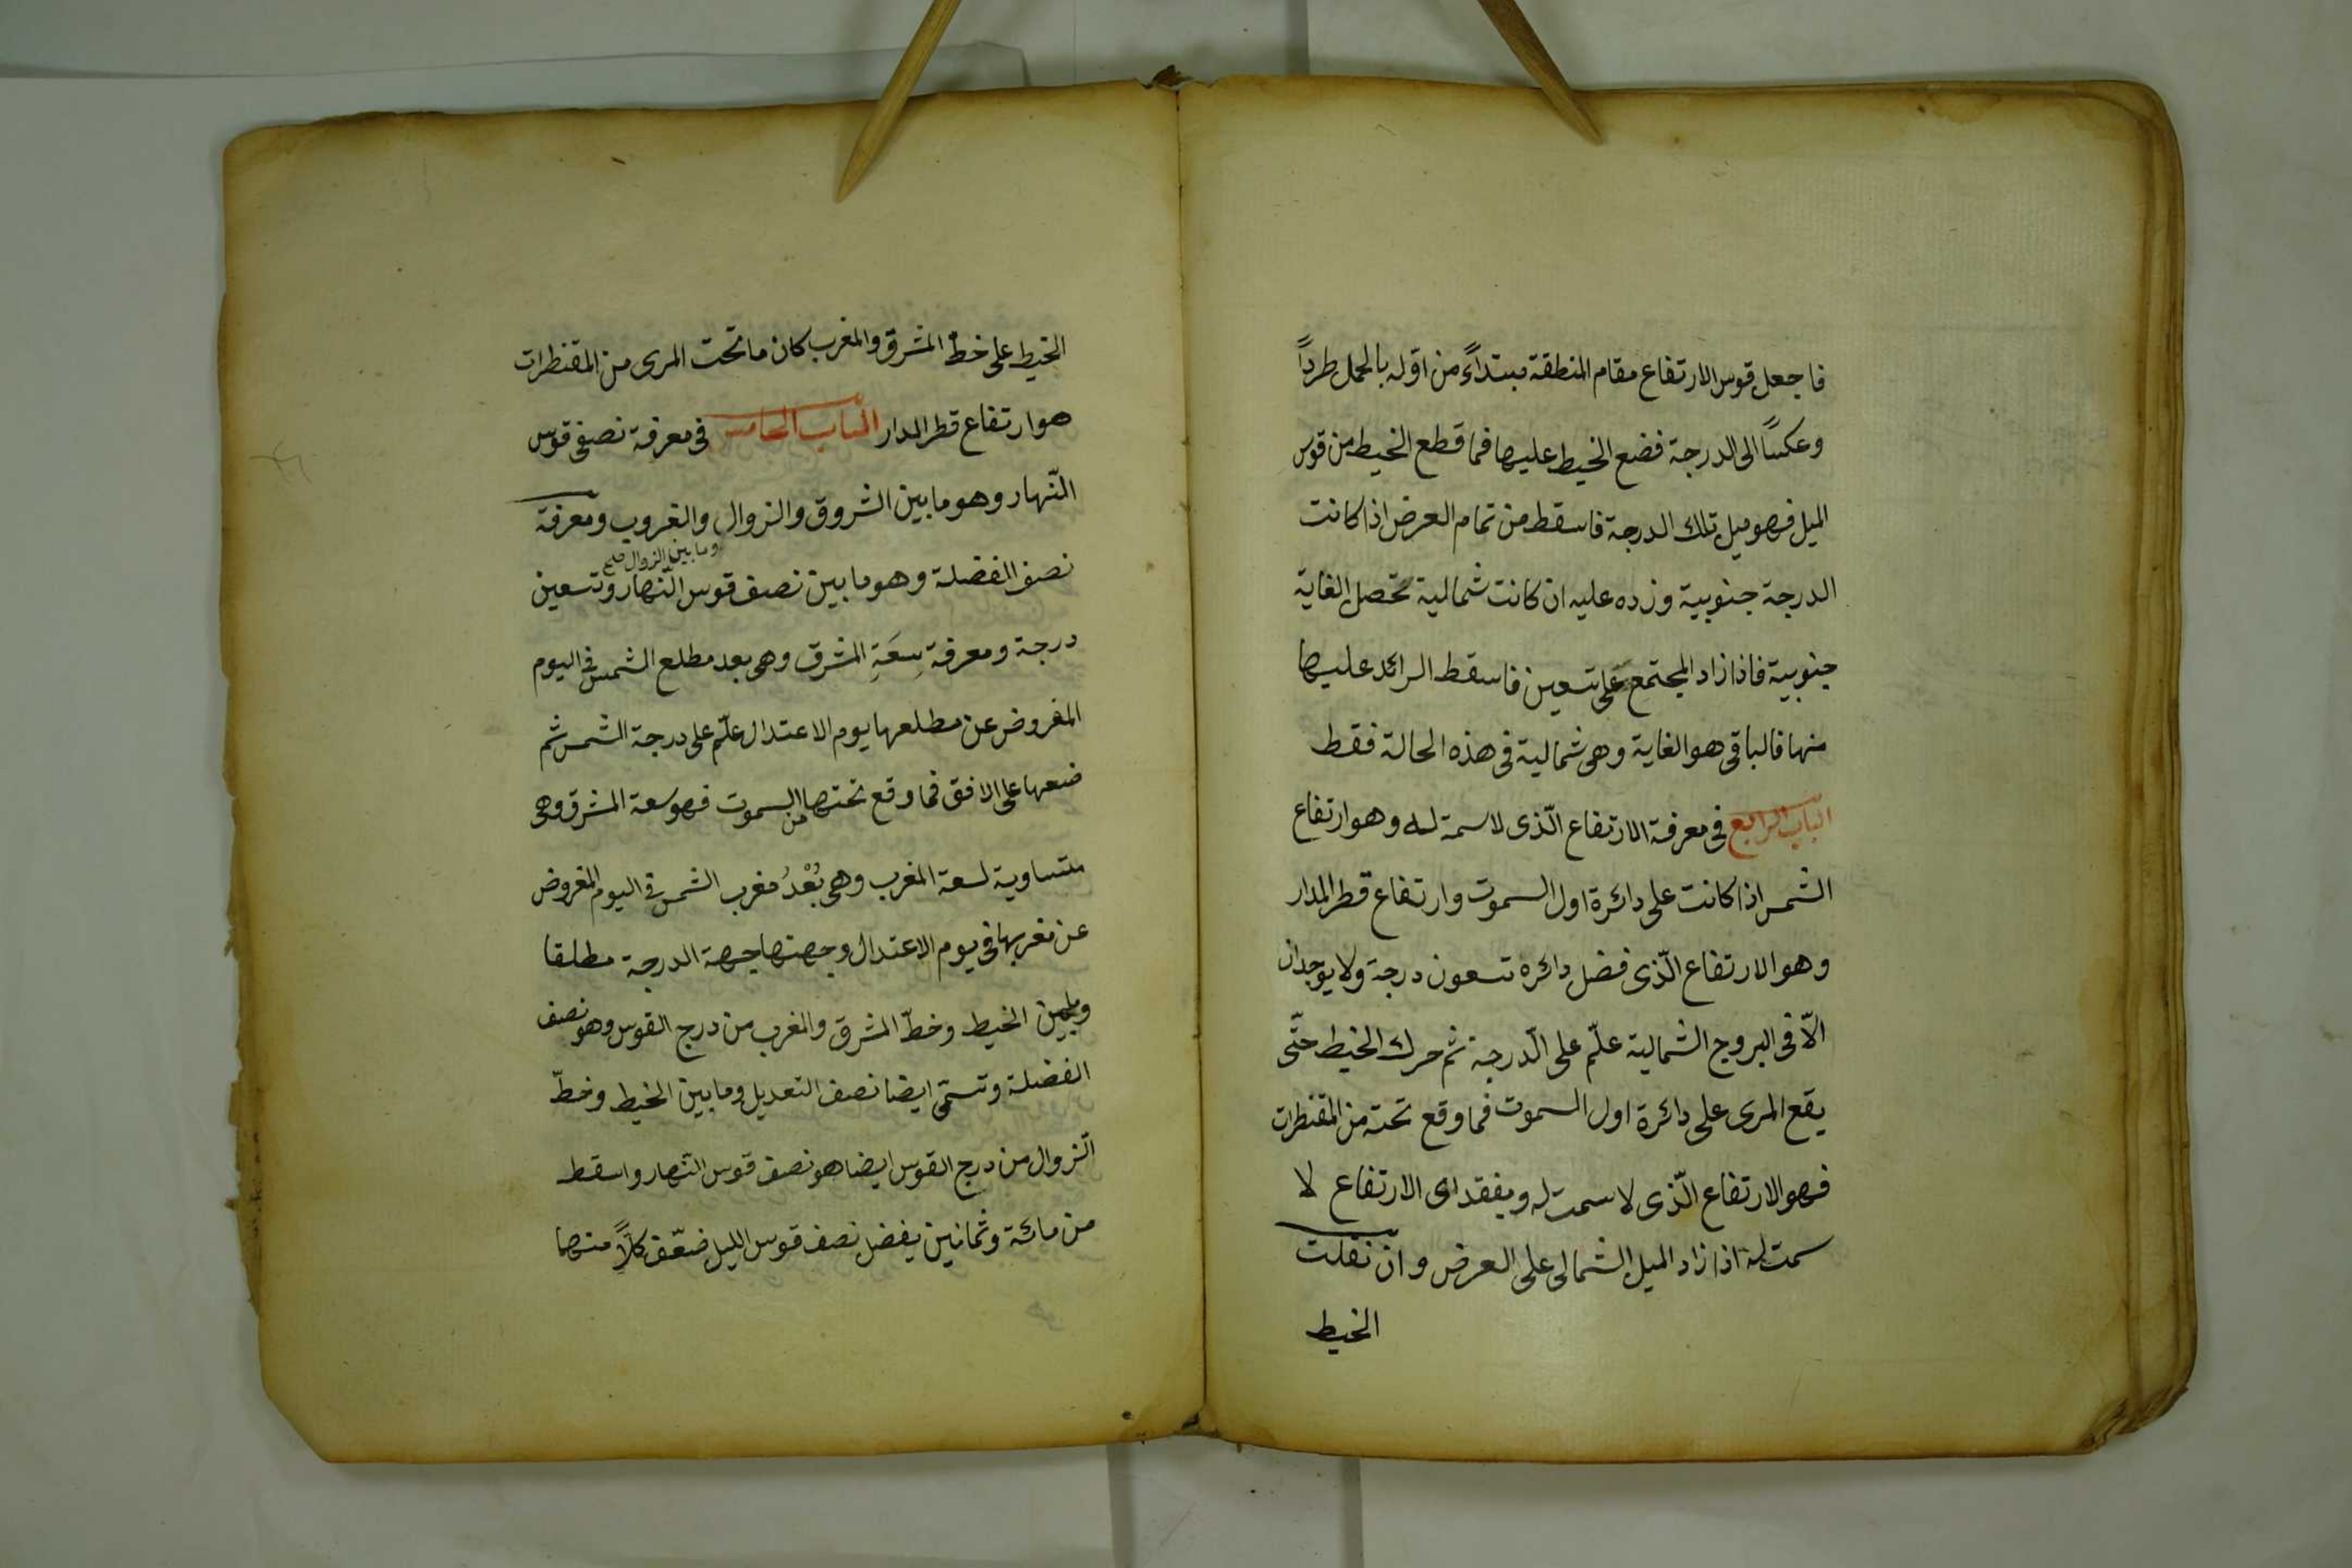 فاجعل قوس الارتفاع مقام المنطقة مبتداءً من اوّله بالحمل طرداً
وعكساً الى الدرجة فضع الخيط عليها فما قطع الخيط من قوس
الميل فهو ميل تلك الدرجة فاسقط من تمام العرض اذا كانت
الدرجة جنوبية وزده عليه ان كانت شمالية تحصل الغاية
جنوبية فاذا زاد المجتمع على تسعين فاسقط الزائد عليها
منها فالباقى هو الغاية وهى شمالية فى هذه الحالة فقط
الباب الرابع فى معرفة الارتفاع الّذى لا سمة له وهو ارتفاع
الشمس اذا كانت على دائرة اول السموت وارتفاع قطر المدار
وهو الارتفاع الّذى فضل دائره تسعون درجة ولا يوجدان
الّا فى البروج الشمالية علّم على الدرجة ثم حرك الخيط حتّى
يقع المرى على دائرة اول السموت فما وقع تحته من المقنطرات
فهو الارتفاع الّذى لا سمت له ويفقد اى الارتفاع لا
سمت له اذا زاد الميل الشمالى على العرض وان نقلت
الخيط
الخيط على خط المشرق والمغرب كان ما تحت المرى من المقنطرات
هو ارتفاع قطر المدار الباب الخامس فى معرفة نصفى قوس
النّهار وهو ما بين الشروق والزوال والغروب ومعرفة
وما بين الزوال صح
نصف الفضلة وهو ما بين نصف قوس النّهار وتسعين
درجة ومعرفة سِعَةِ المشرق وهى بعد مطلع الشمس فى اليوم
المفروض عن مطلعها يوم الاعتدال علّم على درجة الشمس ثم
ضعها على الافق فما وقع تحتها من السموت فهو سعة المشرق وهى
متساوية لسعة المغرب وهى بُعْدُ مغرب الشمس فى اليوم المفروض
عن مغربها فى يوم الاعتدال وجهتها جهة الدرجة مطلقا
وما بين الخيط وخطّ المشرق والمغرب من درج القوس وهو نصف
الفضلة وتسمّى ايضا نصف التعديل وما بين الخيط وخطّ
الزوال من درج القوس ايضا هو نصف قوس النهار واسقط
من مائة وثمانين يفضل نصف قوس الليل ضعّف كلّاً منها